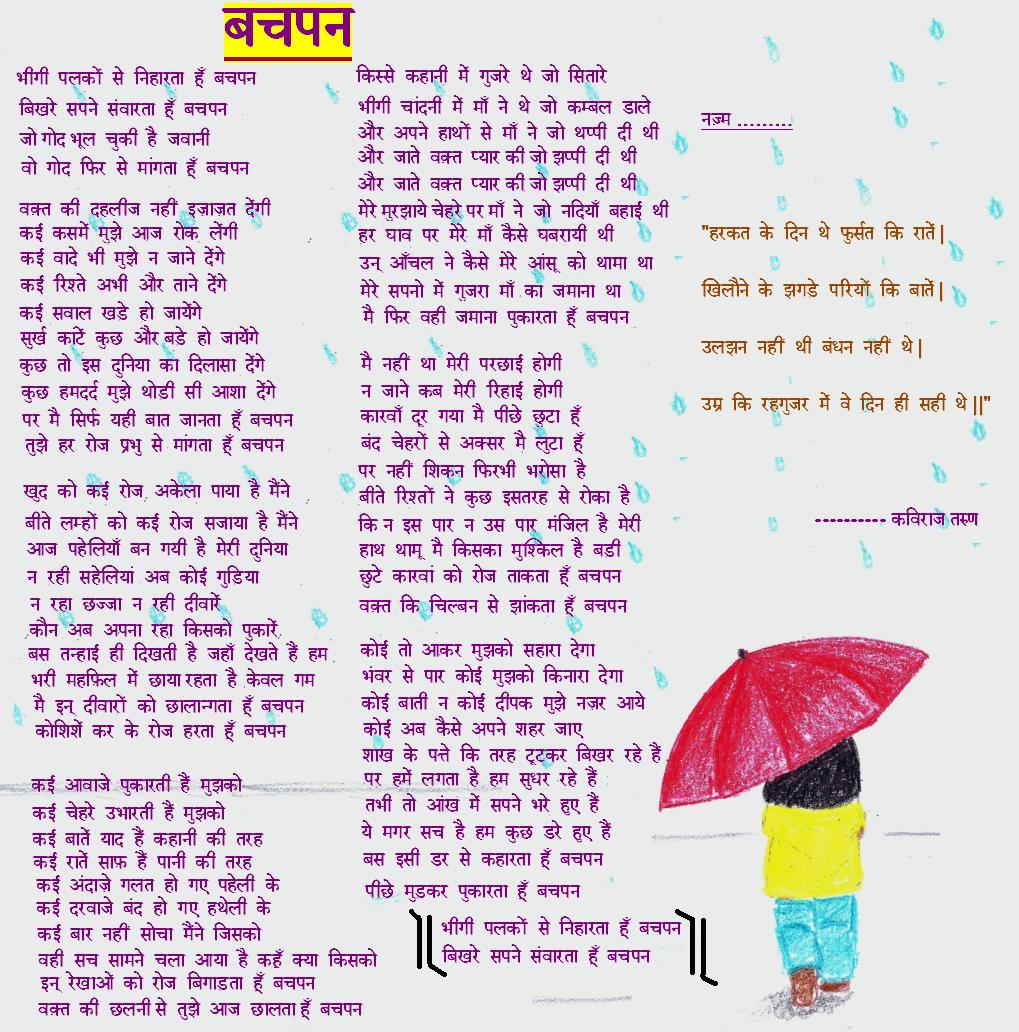 बचपन
भीगी पलकों से निहारता हूँ बचपन
बिखरे सपने संवारता हूँ बचपन
जो गोद भूल चुकी है जवानी
वो गोद फिर से मांगता हूँ बचपन
वक़्त की दहलीज नहीं इज़ाज़त देंगी
कई कसमें मुझे आज रोक लेंगी
कई वादे भी मुझे न जाने देंगे
कई रिश्ते अभी और ताने देंगे
कई सवाल खडे हो जायेंगे
सुर्ख काटें कुछ और बडे हो जायेंगे
कुछ तो इस दुनिया का दिलासा देंगे
कुछ हमदर्द मुझे थोडी सी आशा देंगे
पर मै सिर्फ यही बात जानता हूँ बचपन
तुझे हर रोज प्रभु से मांगता हूँ बचपन
खुद को कई रोज अकेला पाया है मैंने
बीते लम्हों को कई रोज सजाया है मैंने
आज पहेलियाँ बन गयी है मेरी दुनिया
न रही सहेलियां अब कोई गुडिया
न रहा छज्जा न रही दीवारें
कौन अब अपना रहा किसको पुकारें
बस तन्हाई ही दिखती है जहाँ देखते हैं हम
भरी महफ़िल में छाया रहता है केवल गम
मै इन् दीवारों को छालान्गता हूँ बचपन
कोशिशें कर के रोज हरता हूँ बचपन
कई आवाजे पुकारती हैं मुझको
कई चेहरे उभारती हैं मुझको
कई बातें याद हैं कहानी की तरह
कई रातें साफ़ हैं पानी की तरह
कई अंदाज़े गलत हो गए पहेली के
कई दरवाजे बंद हो गए हथेली के
कई बार नहीं सोचा मैंने जिसको
वही सच सामने चला आया है कहूँ क्या किसको
इन् रेखाओं को रोज बिगाडता हूँ बचपन
वक़्त की छलनी से तुझे आज छालता हूँ बचपन
किस्से कहानी में गुजरे थे जो सितारे
भीगी चांदनी में माँ ने थे जो कम्बल डाले
और अपने हाथों से माँ ने जो थप्पी दी थी
और जाते वक़्त प्यार की जो झप्पी दी थी
और जाते वक़्त प्यार की जो झप्पी दी थी
मेरे मुरझाये चेहरे पर माँ ने जो नदियाँ बहाई थी
हर घाव पर मेरे माँ कैसे घबरायी थी
उन् आँचल ने कैसे मेरे आंसू को थामा था
मेरे सपनो में गुजरा माँ का जमाना था
मै फिर वही जमाना पुकारता हूँ बचपन
मै नहीं था मेरी परछाई होगी
न जाने कब मेरी रिहाई होगी
कारवाँ दूर गया मै पीछे छुटा हूँ
बंद चेहरों से अक्सर मै लुटा हूँ
पर नहीं शिकन फिरभी भरोसा है
बीते रिश्तों ने कुछ इसतरह से रोका है
कि न इस पार न उस पार मंजिल है मेरी
हाथ थामू मै किसका मुश्किल है बडी
छुटे कारवां को रोज ताकता हूँ बचपन
वक़्त कि चिल्बन से झांकता हूँ बचपन
कोई तो आकर मुझको सहारा देगा
भंवर से पार कोई मुझको किनारा देगा
कोई बाती न कोई दीपक मुझे नज़र आये
कोई अब कैसे अपने शहर जाए
शाख के पत्ते कि तरह टूटकर बिखर रहे हैं
पर हमें लगता है हम सुधर रहे हैं
तभी तो आंख में सपने भरे हुए हैं
ये मगर सच है हम कुछ डरे हुए हैं
बस इसी डर से कहारता हूँ बचपन
पीछे मुडकर पुकारता हूँ बचपन
भीगी पलकों से निहारता हूँ बचपन
बिखरे सपने संवारता हूँ बचपन
नज़्म .........
"हरकत के दिन थे फुर्सत कि रातें|
खिलौने के झगडे परियों कि बातें|
उलझन नहीं थी बंधन नहीं थे|
उम्र कि रहगुजर में वे दिन ही सही थे||"
---------- कविराज तरुण